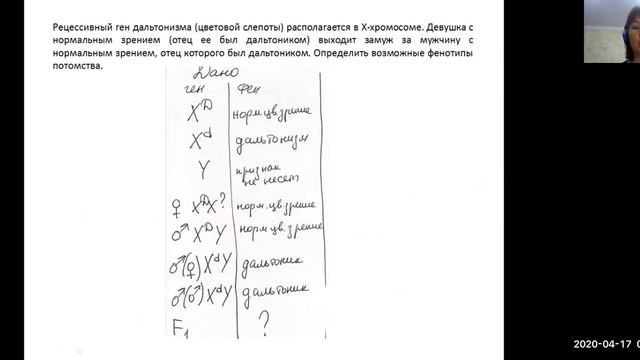 Рецессивный ген дальтонизма (цветовой слепоты) располагается в X-хромосоме. Девушка с
нормальным зрением (отец ее был дальтоником) выходит замуж за мужчину с
нормальным зрением, отец которого был дальтоником. Определить возможные фенотипы
потомства.
Дано
ген фен
X^D норм.цв.зрение
X^d дальтонизм
Y признак
не несет
♀ X^DX^? норм.цв.зрение
♂ X^DY норм.цв.зрение
♂(♀) X^dY дальтоник
♂(♂) X^dY дальтоник
F₁ ?
2020-04-17 0